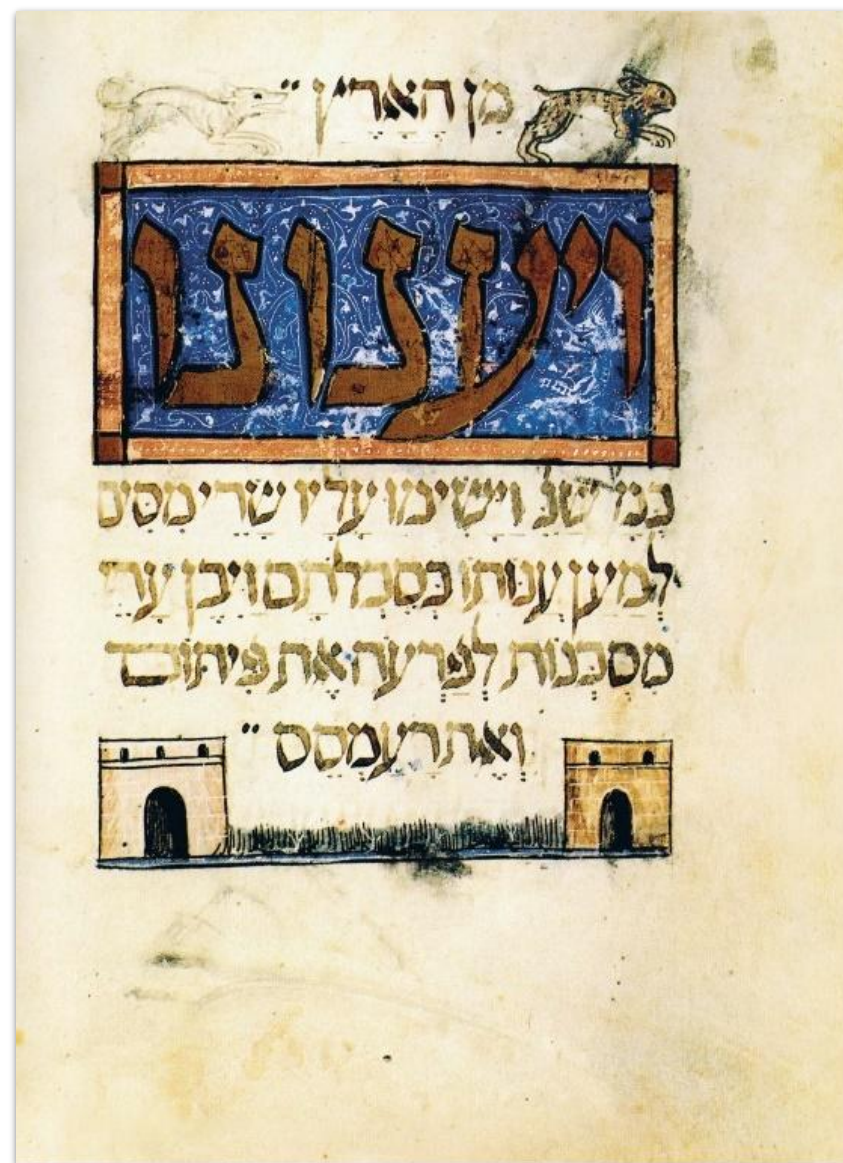 מִן הָאָרֶץ ״
ויענונו
כְּמָ שֶׁנֶּ וַיָּשִׂימוּ עָלָיו שָׂרֵי מִסִּים
לְמַעַן עַנּוֹתוֹ בְּסִבְלֹתָם וַיִּבֶן עָרֵי
מִסְכְּנוֹת לְפַרְעֹה אֶת פִּיתוֹם
וְאֶת רַעַמְסֵס ״